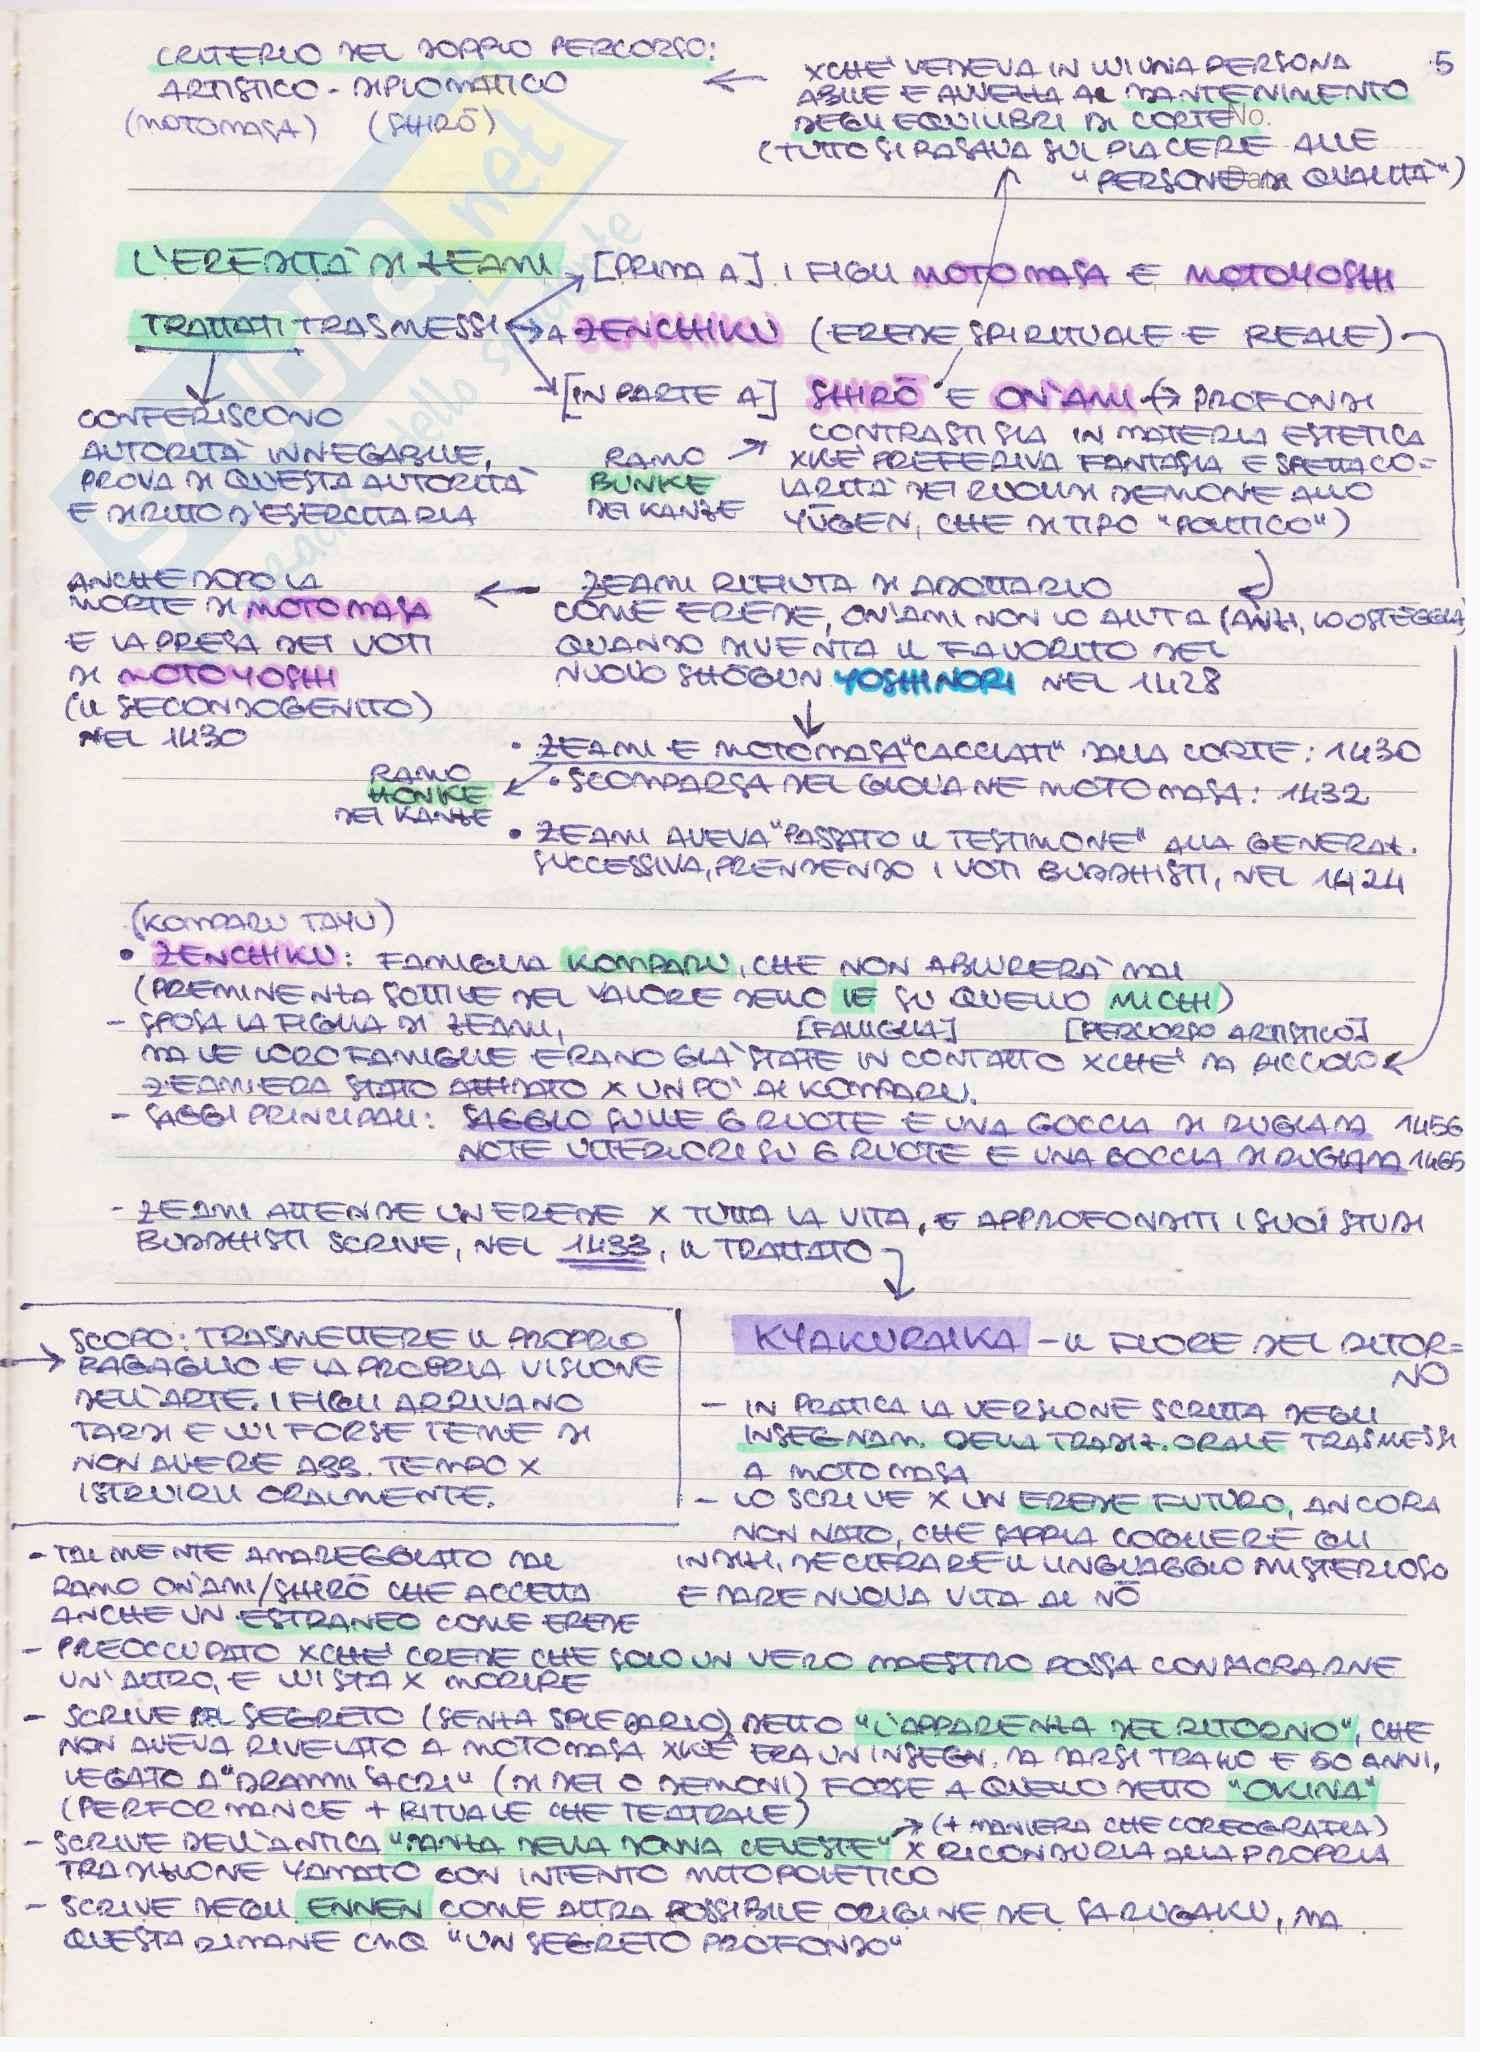 CRITERIO DEL DOPPIO PERCORSO:
ARTISTICO - DIPLOMATICO
(MOTOMASA) (SHIRŌ)
5
XCHE' VEDEVA IN LUI UNA PERSONA
ABILE E AVVEZZA AL MANTENIMENTO
DEGLI EQUILIBRI DI CORTE No.
(TUTTO SI BASAVA SUL PIACERE ALLE
"PERSONE DI QUALITÀ")
L'EREDITÀ DI ZEAMI [PRIMA A] I FIGLI MOTOMASA E MOTOYOSHI
TRATTATI TRASMESSI A ZENCHIKU (EREDE SPIRITUALE E REALE)
[IN PARTE A] SHIRŌ E ON'AMI (→ PROFONDI
CONTRASTI SIA IN MATERIA ESTETICA
XKÈ PREFERIVA FANTASIA E SPETTACO=
LARITÀ DEI RUOLI DI DEMONE ALLO
YŪGEN, CHE DI TIPO "POLITICO")
RAMO
BUNKE
DEI KANZE
CONFERISCONO
AUTORITÀ INNEGABILE,
PROVA DI QUESTA AUTORITÀ
E DIRITTO D'ESERCITARLA
ZEAMI RIFIUTA DI ADOTTARLO
COME EREDE, ON'AMI NON LO AIUTA (ANZI, LO OSTEGGIA)
QUANDO DIVENTA IL FAVORITO DEL
NUOVO SHŌGUN YOSHINORI NEL 1428
ANCHE DOPO LA
MORTE DI MOTOMASA
E LA PRESA DEI VOTI
DI MOTOYOSHI
(IL SECONDOGENITO)
NEL 1430
• ZEAMI E MOTOMASA "CACCIATI" DALLA CORTE: 1430
• SCOMPARSA DEL GIOVANE MOTOMASA: 1432
RAMO
HONKE
DEI KANZE
• ZEAMI AVEVA "PASSATO IL TESTIMONE" ALLA GENERAZ.
SUCCESSIVA, PRENDENDO I VOTI BUDDHISTI, NEL 1424
(KOMPARU TAYU)
• ZENCHIKU: FAMIGLIA KOMPARU, CHE NON ABIURERÀ MAI
(PREMINENZA SOTTILE DEL VALORE DELLO IE SU QUELLO MICHI)
[FAMIGLIA] [PERCORSO ARTISTICO]
- SPOSA LA FIGLIA DI ZEAMI,
MA LE LORO FAMIGLIE ERANO GIÀ STATE IN CONTATTO XCHE' DA PICCOLO
ZEAMI ERA STATO AFFIDATO X UN PO' AI KOMPARU.
- SAGGI PRINCIPALI: SAGGIO SULLE 6 RUOTE E UNA GOCCIA DI RUGIADA 1456
NOTE ULTERIORI SU 6 RUOTE E UNA GOCCIA DI RUGIADA 1465
- ZEAMI ATTENDE UN EREDE X TUTTA LA VITA, E APPROFONDITI I SUOI STUDI
BUDDHISTI SCRIVE, NEL 1433, IL TRATTATO
KYAKURAIKA - IL FIORE DEL RITOR=
NO
- IN PRATICA LA VERSIONE SCRITTA DEGLI
INSEGNAM. DELLA TRADIZ. ORALE TRASMESSI
A MOTOMASA
- LO SCRIVE X UN EREDE FUTURO, ANCORA
NON NATO, CHE SAPPIA COGLIERE GLI
INDIZI, DECIFRARE IL LINGUAGGIO MISTERIOSO
E DARE NUOVA VITA AL NŌ
SCOPO: TRASMETTERE IL PROPRIO
BAGAGLIO E LA PROPRIA VISIONE
DELL'ARTE. I FIGLI ARRIVANO
TARDI E LUI FORSE TEME DI
NON AVERE ABB. TEMPO X
ISTRUIRLI ORALMENTE.
- TALMENTE AMAREGGIATO DAL
RAMO ON'AMI/SHIRŌ CHE ACCETTA
ANCHE UN ESTRANEO COME EREDE
- PREOCCUPATO XCHE' CREDE CHE SOLO UN VERO MAESTRO POSSA CONSACRARNE
UN ALTRO, E LUI STA X MORIRE
- SCRIVE DEL SEGRETO (SENZA SPIEGARLO) DETTO "L'APPARENZA DEL RITORNO", CHE
NON AVEVA RIVELATO A MOTOMASA XKÈ ERA UN INSEGN. DA DARSI TRA 40 E 50 ANNI,
LEGATO A "DRAMMI SACRI" (DI DEI O DEMONI) FORSE A QUELLO DETTO "OKINA"
(PERFORMANCE + RITUALE CHE TEATRALE)
(+ MANIERA CHE COREOGRAFIA)
- SCRIVE DELL'ANTICA "DANZA DELLA DONNA CELESTE" X RICONDURLA ALLA PROPRIA
TRADIZIONE YAMATO CON INTENTO MITOPOIETICO
- SCRIVE DEGLI ENNEN COME ALTRA POSSIBILE ORIGINE DEL SARUGAKU, MA
QUESTA RIMANE CMQ "UN SEGRETO PROFONDO"